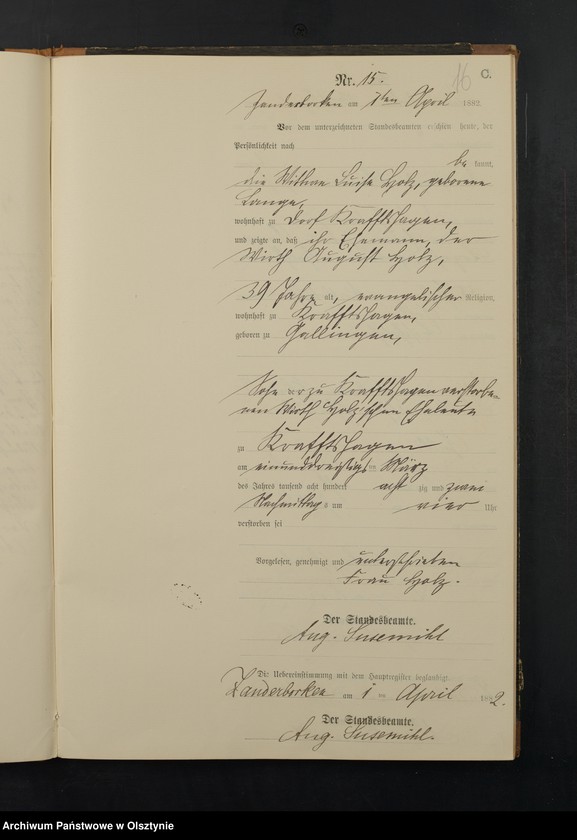 16
C.
Nr. 15.
Zanderborken am 1ten April 1882.
Vor dem unterzeichneten Standesbeamten erschien heute, der
Persönlichkeit nach
bekannt,
die Wittwe Luise Holz, geborene
Lange,
wohnhaft zu Dorf Krafftshagen,
und zeigte an, daß ihr Ehemann, der
Wirth August Holz,
39 Jahre alt, evangelischer Religion,
wohnhaft zu Krafftshagen,
geboren zu Gallingen,
Sohn der zu Krafftshagen verstorbe-
nen Wirth Holz'schen Eheleute
zu Krafftshagen
am einunddreißigsten März
des Jahres tausend acht hundert achtzig und zwei
Nachmittags um vier Uhr
verstorben sei
Vorgelesen, genehmigt und unterschrieben
Frau Holz.
Der Standesbeamte.
Aug. Susemihl
Die Uebereinstimmung mit dem Hauptregister beglaubigt.
Zanderborken am 1 ten April 1882.
Der Standesbeamte.
Aug. Susemihl.
Archiwum Państwowe w Olsztynie